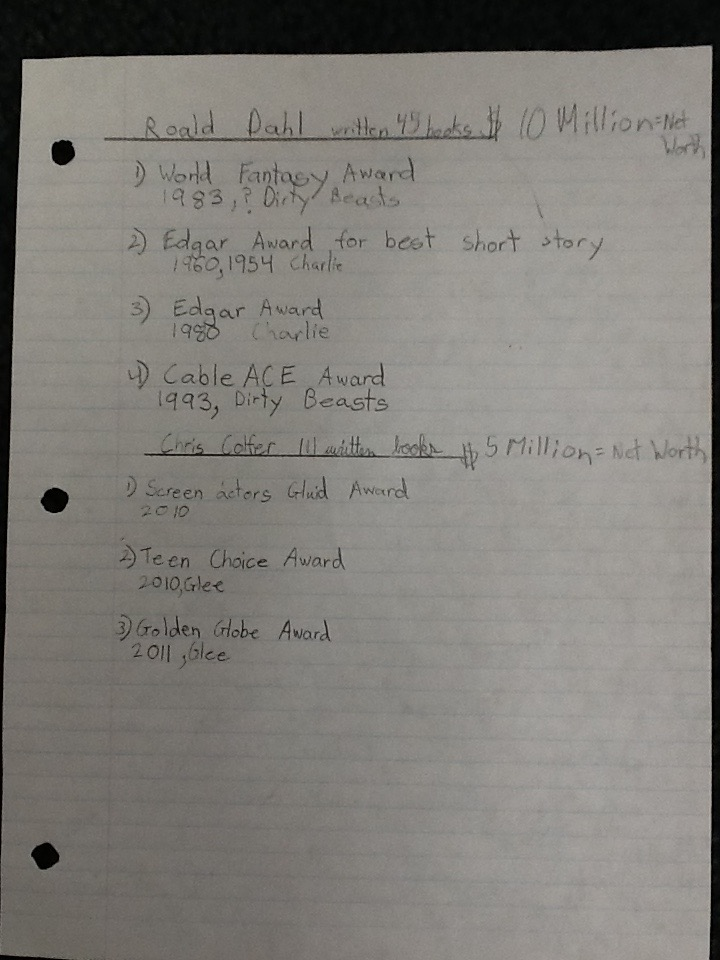 Roald Dahl written 45 books $ 10 Million = Net
Worth
1) World Fantasy Award
1983, ? Dirty Beasts
2) Edgar Award for best short story
1960, 1954 Charlie
3) Edgar Award
1980 Charlie
4) Cable ACE Award
1993, Dirty Beasts
Chris Colfer 111 written books $ 5 Million = Net Worth
1) Screen actors Gluid Award
2010
2) Teen Choice Award
2010, Glee
3) Golden Globe Award
2011, Glee